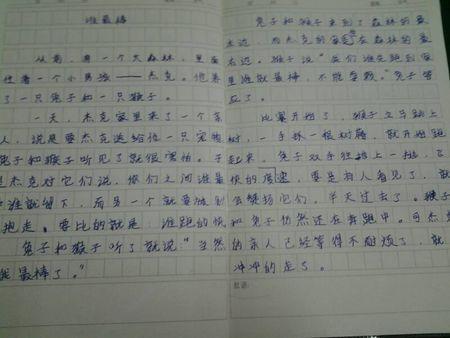 谁最棒
从前,有一个大森林,里面
住着一个小男孩——杰克。他养
了一只兔子和一只猴子。
一天,杰克家里来了一个客
人,说是要杰克送给他一只宠物
兔子和猴子听见了就很害怕。于
是杰克对它们说,你们之间谁最
棒谁就留下,而另一个就要被别
抱走。要比的就是,谁跑的快
兔子和猴子听了就说"当然
我最棒了。"
兔子和猴子来到了森林的最
左边,而杰克的家在森林的最
右边。猴子说"我们谁先跑到家
里谁就最棒,不能拿救。"兔子答
应了。
比赛开始了,猴子立马跳上
树,一手抓一根树藤,就开始跑
起来,兔子双手往路上一拍,飞
快的度速,要是有人看见了,就
会赞扬它们,半天过去了。猴子
和兔子仍然还在奔跑中。可杰克
的亲人已经等得不耐烦了,就
冲冲的走了。
批语: